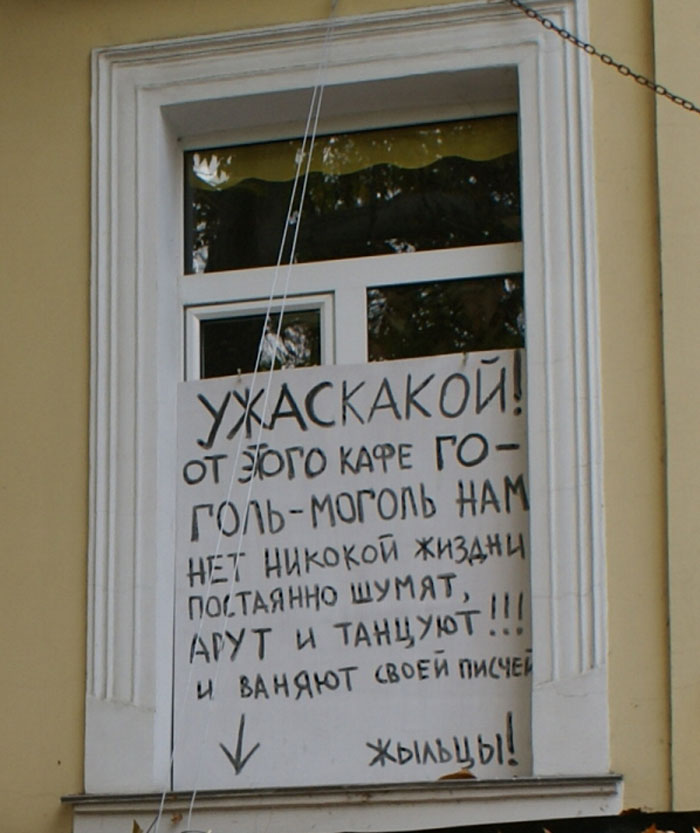 УЖАСКАКОЙ!
ОТ ЭТОГО КАФЕ ГО-
ГОЛЬ-МОГОЛЬ НАМ
НЕТ НИКОКОЙ ЖИЗДНИ
ПОСТАЯННО ШУМЯТ,
АРУТ И ТАНЦУЮТ!!!
И ВАНЯЮТ СВОЕЙ ПИСЧЕЙ
ЖЫЛЬЦЫ!